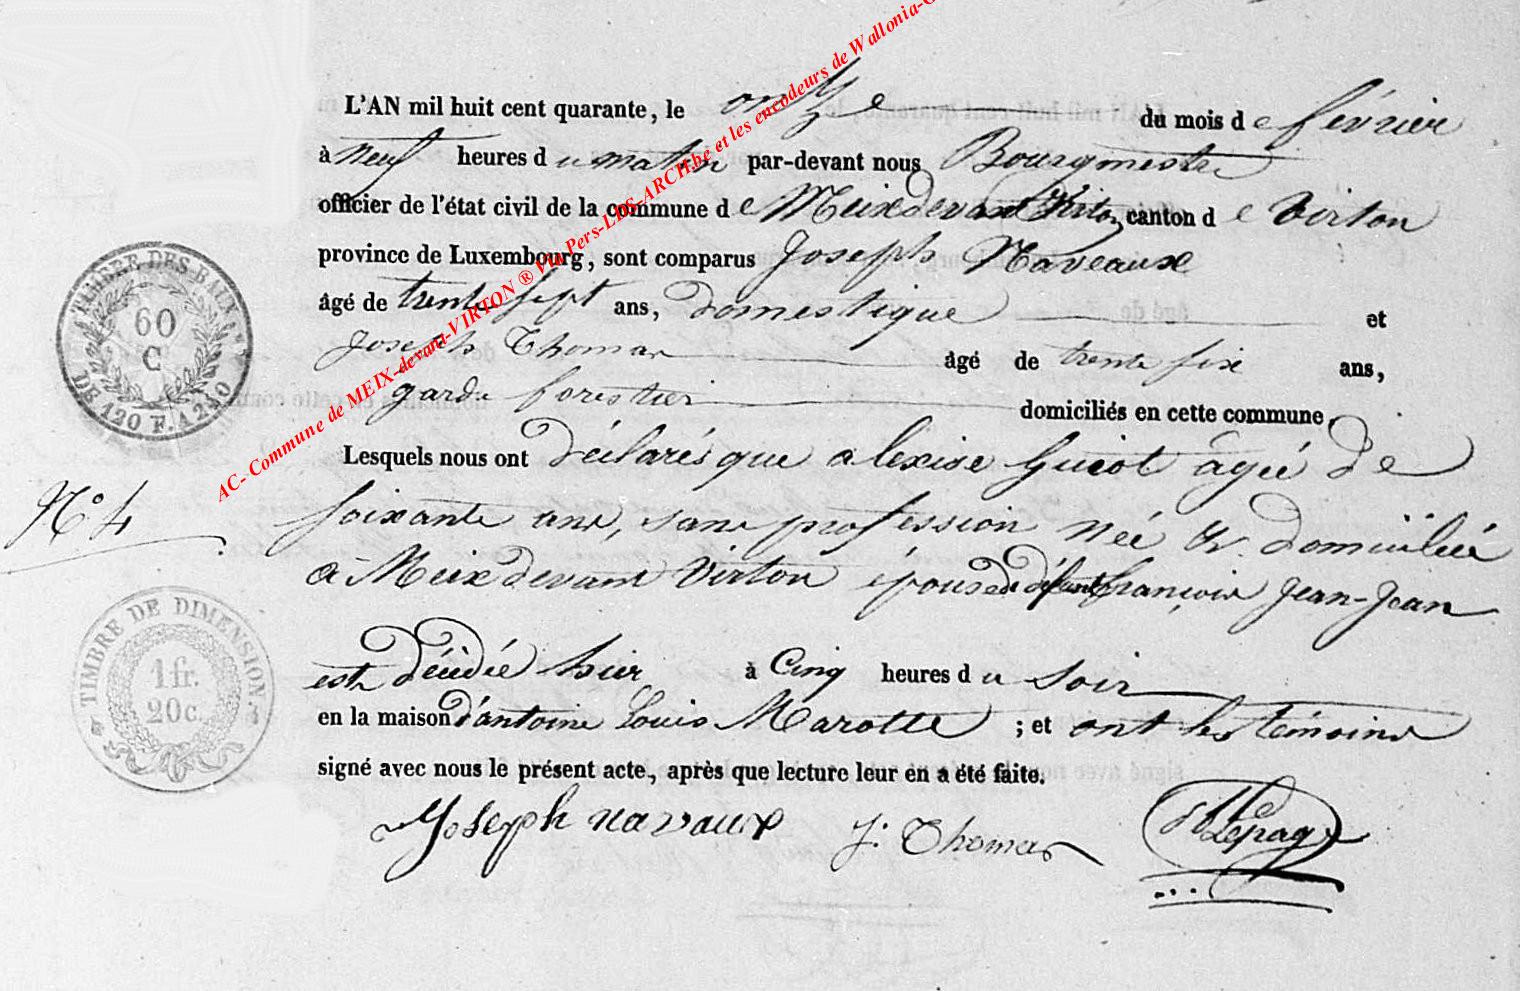 L'AN mil huit cent quarante, le onze du mois de février
à neuf heures du matin par-devant nous Bourgmestre
officier de l'état civil de la commune de Meix devant Virton canton de Virton
province de Luxembourg, sont comparus Joseph Naveaux
âgé de trente sept ans, domestique et
Joseph Thomas âgé de trente six ans,
garde forestier domiciliés en cette commune.
Lesquels nous ont déclarés que alexise Guiot âgée de
N° 4
soixante ans, sans profession née & domiciliée
a Meix devant Virton épouse de défunt françois Jean-Jean
est décédée hier à Cinq heures du soir
en la maison d'antoine Louis Marotte ; et ont les témoins
signé avec nous le présent acte, après que lecture leur en a été faite.
Joseph navaux J. Thomas Lepage
TIMBRE DES
60
C
DE 120 F. A 240
TIMBRE DE DIMENSION
1 fr.
20 c.
AC- Commune de MEIX-devant-VIRTON ® Via Pers-LES-ARCH.be et les encodeurs de Wallonia-